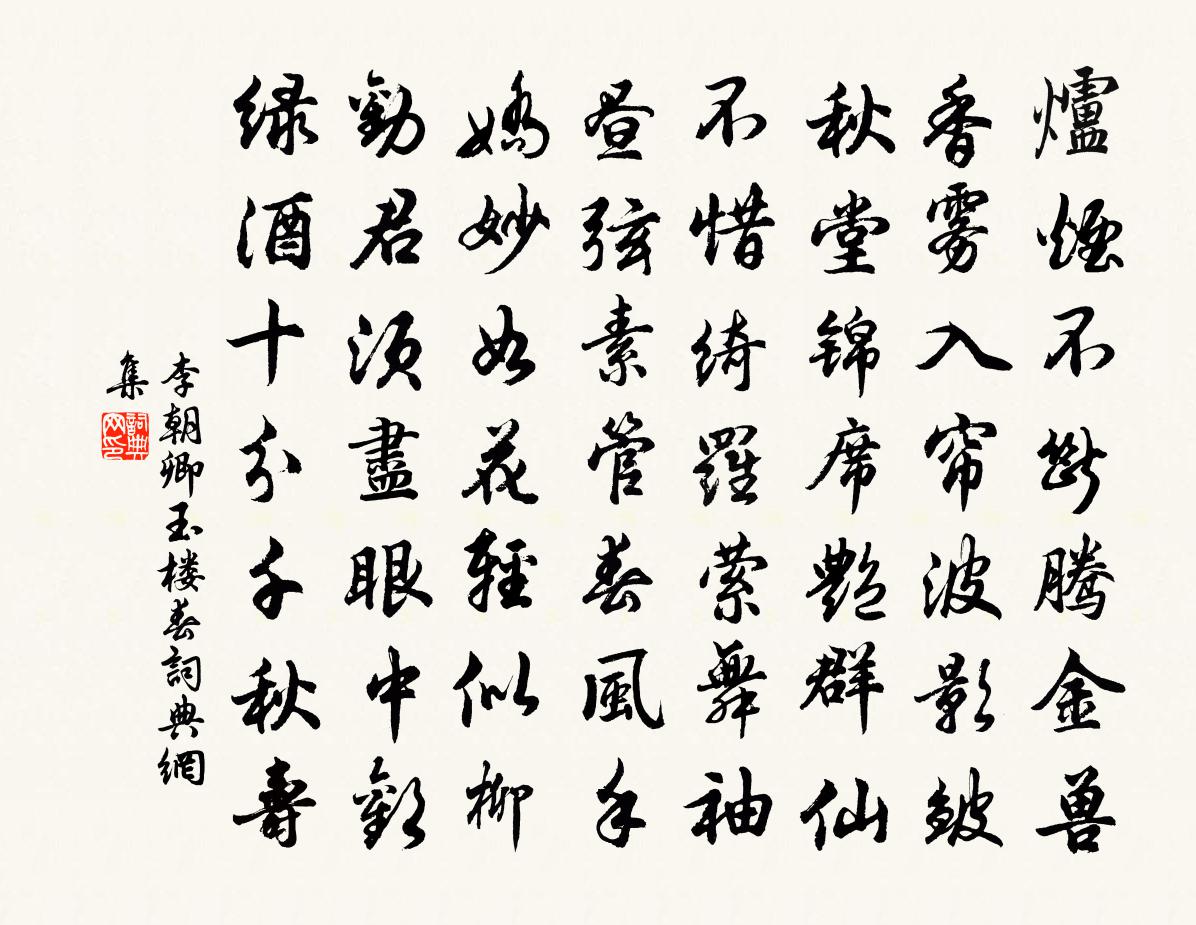 爐煙不斷騰金兽
香雾入帘波影皱
秋堂锦席艷群仙
不惜绮羅萦舞袖
昼弦素管春風手
嬌妙如花輕似柳
勸君須盡眼中歡
绿酒十分千秋壽
李朝卿玉楼春詞典網
集
詞典网印